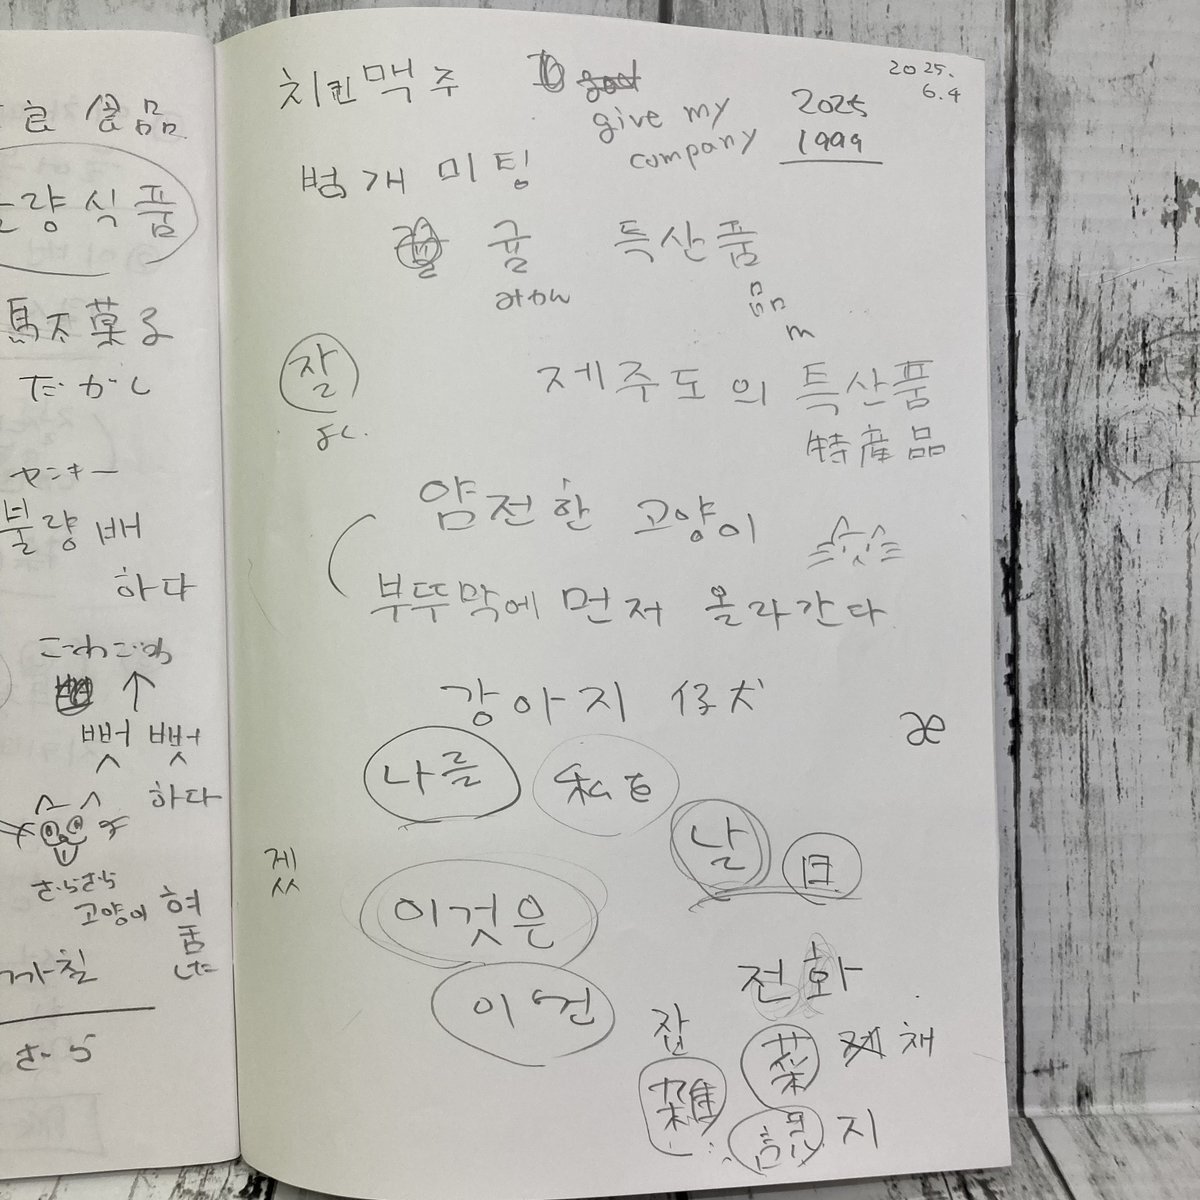 食品
량식품
馬太菓子
だがし
ヤンキー
불량배
하다
ごわごわ
뻣뻣
하다
ざらざら
고양이
혀
품
까칠
ざら
치킨맥주
give my
company
2025
1999
2025.
6.4
벙개미팅
귤 특산품
みかん
m
잘
よく.
제주도의 특산품
特産品
얌전한 고양이
부뚜막에 먼저 올라간다
강아지 仔犬
æ
나를 私を
날 日
겠
이것은
이건
전화
잡
雑
菜 채
誌 지